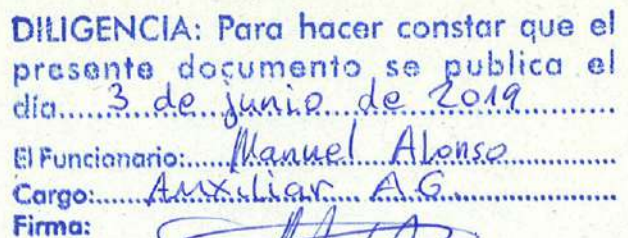 DILIGENCIA: Para hacer constar que el
presente documento se publica el
día.....3 de junio de 2019..........
El Funcionario:.....Manuel Alonso..........
Cargo:.....Auxiliar A.G...........
Firma: